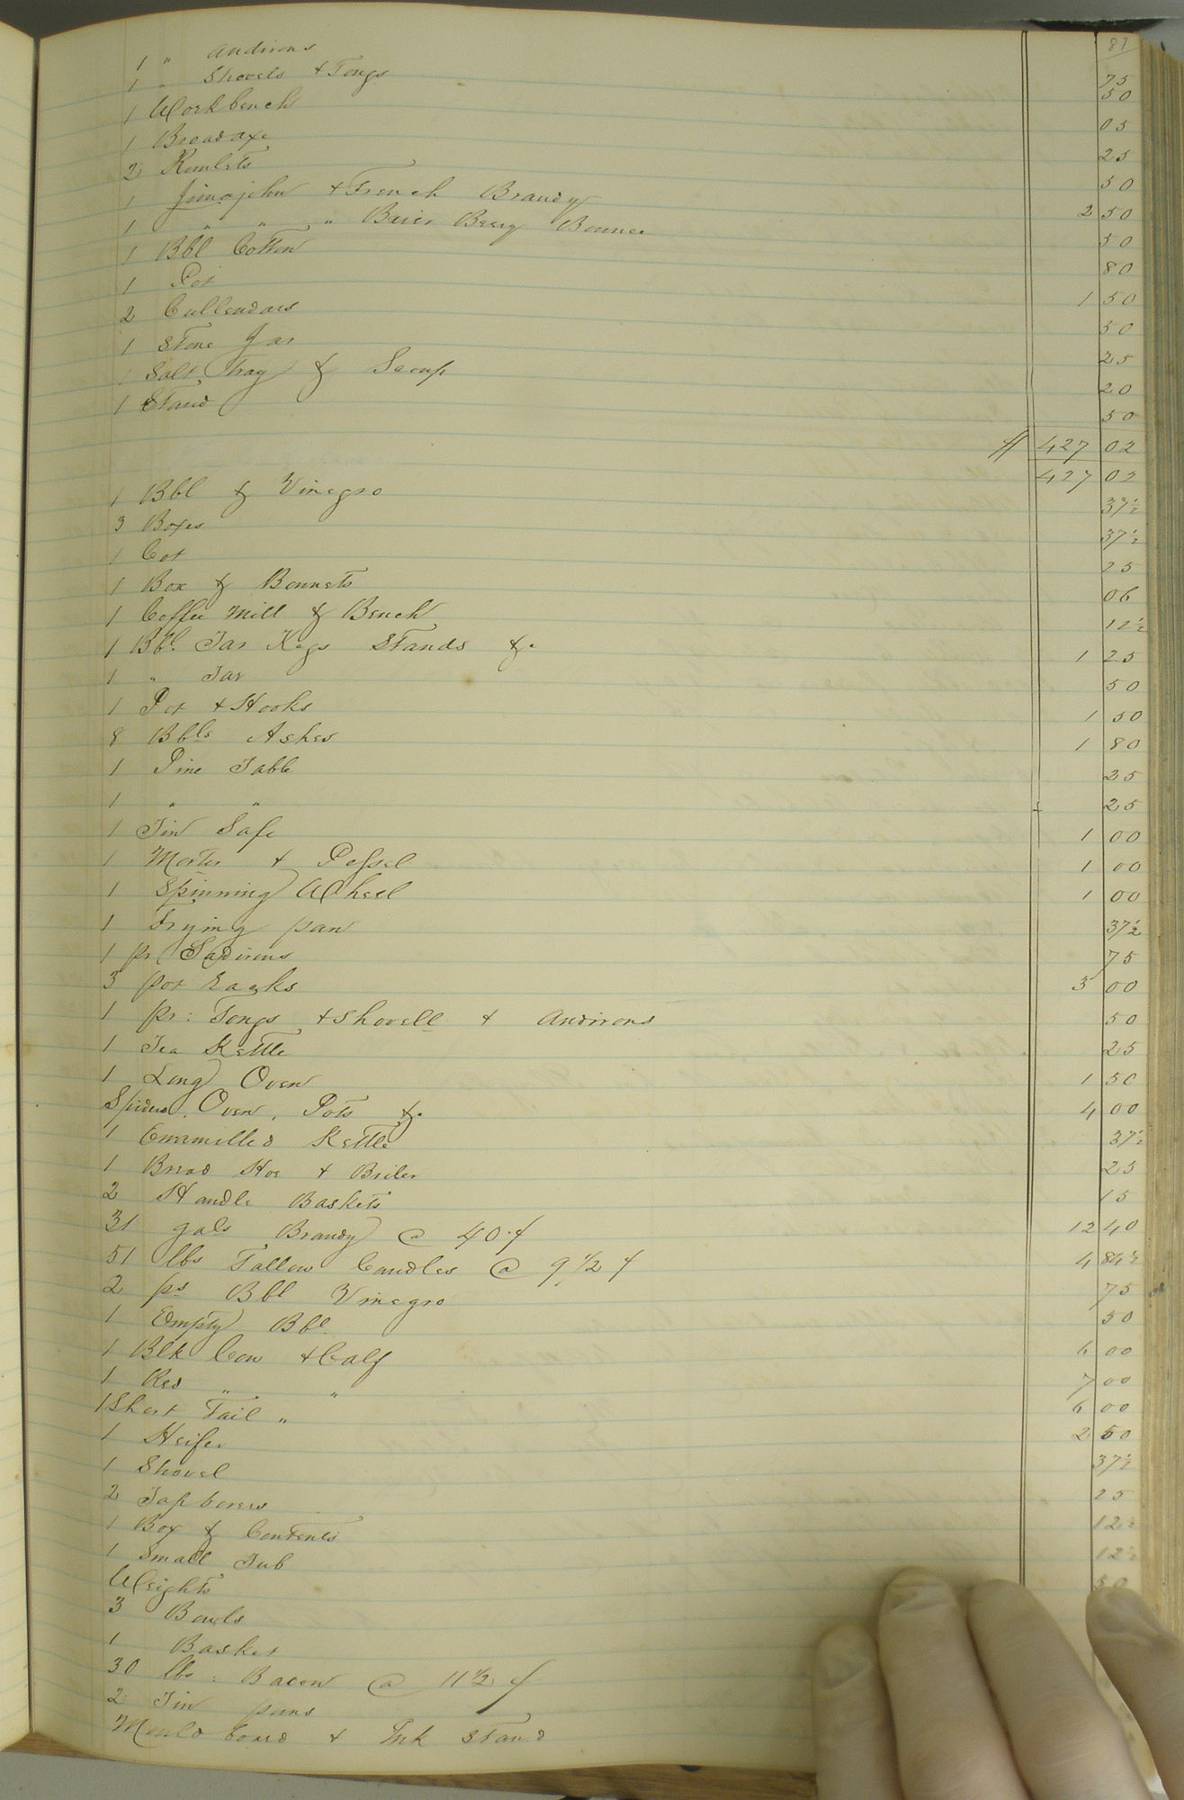 81
1 " Andirons 75
1 " Shovels & Tongs 50
1 Workbench 05
1 Broadaxe 25
2 Kimlets 50
1 Jimojohn & French Brandy 2 50
1 " " " Brier Berry Bounce 50
1 Bbl Cotton 80
1 Pot 1 50
2 Cullendars 50
1 Stone Jar 25
1 Salt, Tray & 20
1 Stand 50
427 02
427 02
1 Bbl & Vinegro 37½
3 Boxes 37½
1 Cot 25
1 Box & Bonnets 06
1 Coffee Mill & Bench 12½
1 Bbl. Tar Kegs Stands &c 1 25
1 " Tar 50
1 Pot & Hooks 1 50
8 Bbls Ashes 1 80
1 Pine Table 25
1 " " 25
1 Tin Safe 1 00
1 Morter & Pessel 1 00
1 Spinning Wheel 1 00
1 Frying pan 37½
1 pr Sadirons 75
3 pot Racks 3 00
1 pr: Tongs & Shovell & Andirons 50
1 Tea Kettle 25
1 Long Oven 1 50
Spiders, Oven, Pots &c 4 00
1 Enamilled Kettle 37½
1 Bread Hoe & Briler 25
2 Handle Baskets 15
31 gals Brandy @ 40 ¢ 12 40
51 lbs Tallow Candles @ 9½ ¢ 4 84½
2 ps Bbl Vinegro 75
1 Empty Bbl 50
1 Blk Cow & Calf 6 00
1 Red " " 7 00
1 Short Tail " 6 00
1 Heifer 2 50
1 Shovel 37½
2 Tap borers 25
1 Box & Contents 12½
1 Small Tub 12½
Weights 50
3 Bowls
1 Basket
30 lbs: Bacon @ 11½ ¢
2 Tin pans
Mould board & Ink Stand